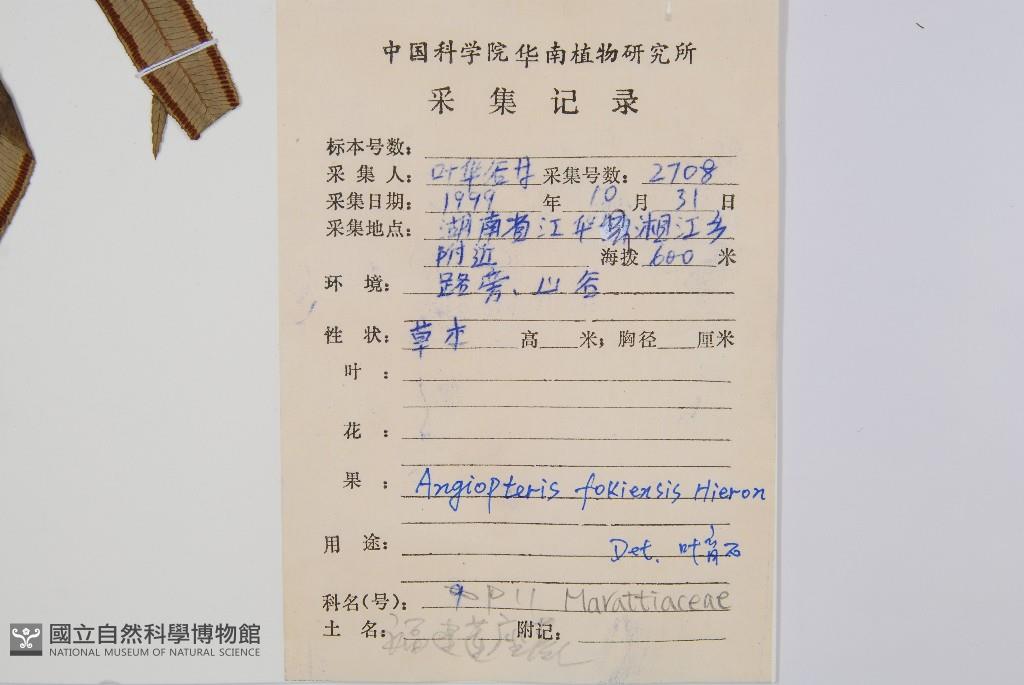 中国科学院华南植物研究所
采 集 记 录
标本号数:
采 集 人: 叶华谷 采集号数: 2708
采集日期: 1999 年 10 月 31 日
采集地点: 湖南省江华县湘江乡
附近 海拨 600 米
环 境: 路旁、山谷
性 状: 草本 高 米; 胸径 厘米
叶 :
花 :
果 : Angiopteris fokiensis Hieron
用 途:
Det. 叶育石
科名(号): P11 Marattiaceae
土 名: 福建莲座蕨 附记:
國立自然科學博物館
NATIONAL MUSEUM OF NATURAL SCIENCE